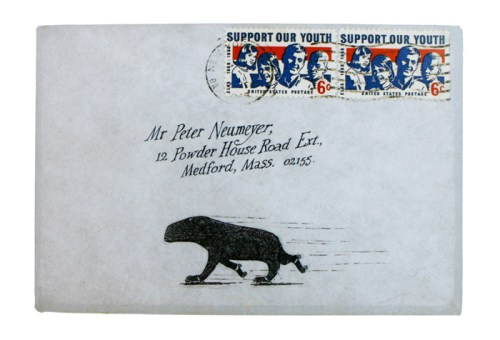 SUPPORT OUR YOUTH
SUPPORT OUR YOUTH
ELKS 1868-1968
6c
UNITED STATES POSTAGE
6c
UNITED STATES POSTAGE
Mr Peter Neumeyer,
12 Powder House Road Ext.,
Medford, Mass. 02155.